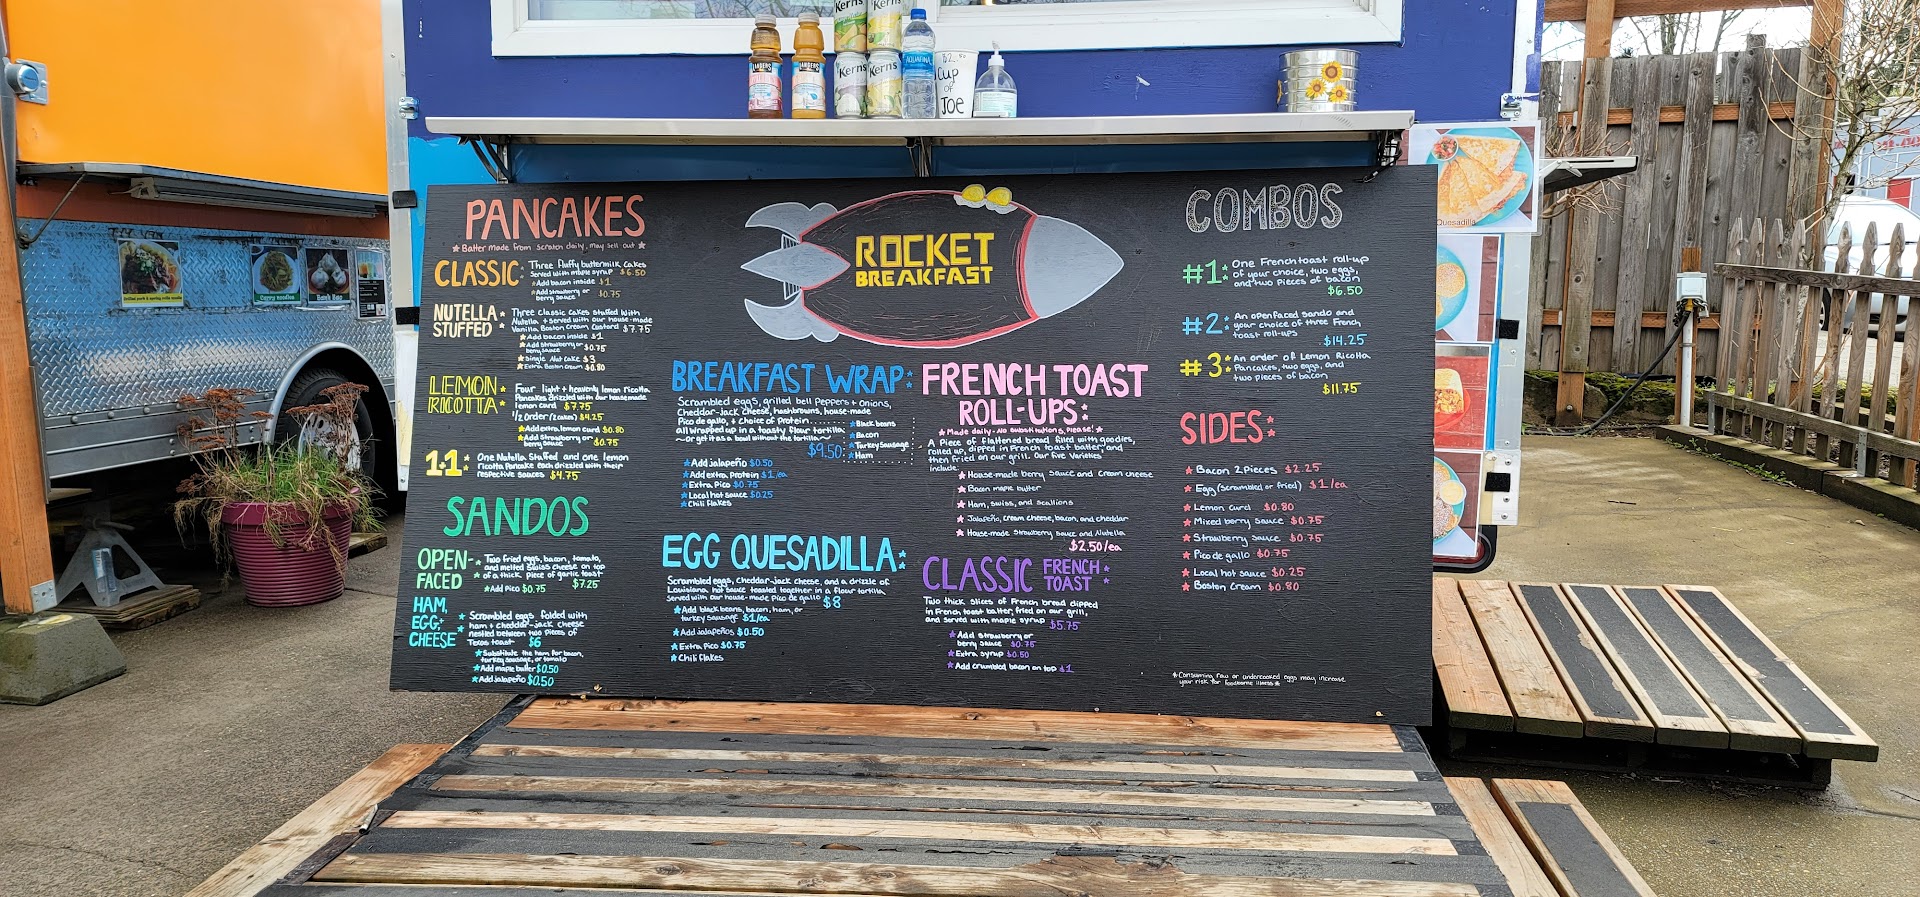 Kern's
Kern's
Kerns
Kerns
LANGERS
LANGERS
AQUAFINA
$2.50
Cup
of
Joe
PANCAKES
*Batter made from scratch daily, may sell out*
CLASSIC:
Three fluffy buttermilk cakes
served with maple syrup $6.50
*Add bacon inside $1
*Add strawberry or
berry sauce $0.75
NUTELLA
STUFFED
Three classic cakes stuffed with
Nutella + served with our house-made
Vanilla Boston Cream Custard $7.75
*Add bacon inside $1
*Add strawberry or
berry sauce $0.75
*Single Nut cake $3
*Extra Boston Cream $0.80
LEMON
RICOTTA
Four light + heavenly lemon ricotta
Pancakes drizzled with our housemade
lemon curd $7.75
1/2 Order (2 cakes) $4.25
*Add extra lemon curd $0.80
*Add Strawberry or
berry sauce $0.75
1+1
One Nutella Stuffed and one lemon
ricotta pancake each drizzled with their
respective sauces $4.75
SANDOS
OPEN-
FACED
Two fried eggs, bacon, tomato,
and melted Swiss cheese on top
of a thick piece of garlic toast
*Add Pico $0.75 $7.25
HAM,
EGG,+
CHEESE
Scrambled eggs folded with
ham + cheddar-jack cheese
nestled between two pieces of
Texas toast $6
*Substitute the ham for bacon,
turkey sausage, or tomato
*Add maple butter $0.50
*Add jalapeño $0.50
ROCKET
BREAKFAST
BREAKFAST WRAP:
Scrambled eggs, grilled bell peppers + onions,
Cheddar-Jack cheese, hashbrowns, house-made
Pico de gallo, + choice of protein
all wrapped up in a toasty flour tortilla
~or get it as a bowl without the tortilla~
$9.50
*Black beans
*Bacon
*Turkey Sausage
*Ham
*Add jalapeño $0.50
*Add extra protein $1/ea
*Extra Pico $0.75
*Local hot sauce $0.25
*Chili flakes
EGG QUESADILLA:
Scrambled eggs, cheddar-jack cheese, and a drizzle of
Louisiana hot sauce toasted together in a flour tortilla,
served with our house-made pico de gallo $8
*Add black beans, bacon, ham, or
turkey sausage $1/ea
*Add jalapeños $0.50
*Extra Pico $0.75
*Chili flakes
FRENCH TOAST
ROLL-UPS:
*Made daily - No substitutions, Please!*
A Piece of flattened bread filled with goodies,
rolled up, dipped in French toast batter, and
then fried on our grill. Our five varieties
include:
*House-made berry sauce and cream cheese
*Bacon maple butter
*Ham, swiss, and scallions
*Jalapeño, cream cheese, bacon, and cheddar
*House-made Strawberry sauce and Nutella
$2.50/ea
CLASSIC FRENCH
TOAST
Two thick slices of French bread dipped
in French toast batter, fried on our grill,
and served with maple syrup $5.75
*Add strawberry or
berry sauce $0.75
*Extra syrup $0.50
*Add crumbled bacon on top $1
COMBOS
#1:
One French toast roll-up
of your choice, two eggs,
and two pieces of bacon
$6.50
#2:
An openfaced sando and
your choice of three French
toast roll-ups
$14.25
#3:
An order of Lemon Ricotta
Pancakes, two eggs, and
two pieces of bacon
$11.75
SIDES:
*Bacon 2 Pieces $2.25
*Egg (scrambled or fried) $1/ea
*Lemon Curd $0.80
*Mixed berry sauce $0.75
*Strawberry sauce $0.75
*Pico de gallo $0.75
*Local hot sauce $0.25
*Boston Cream $0.80
*Consuming raw or undercooked eggs may increase
your risk for foodborne illness*
Quesadilla